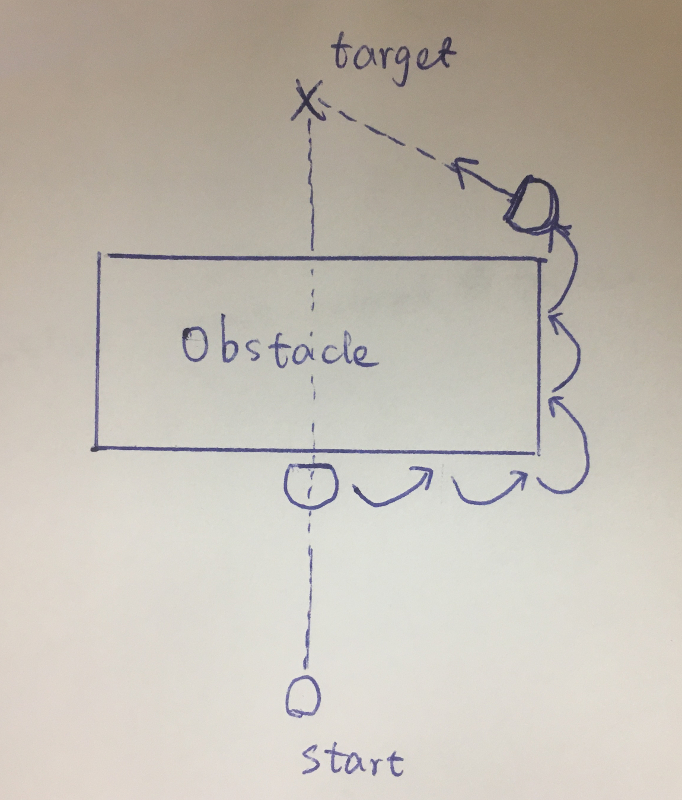 target
X
Obstacle
start